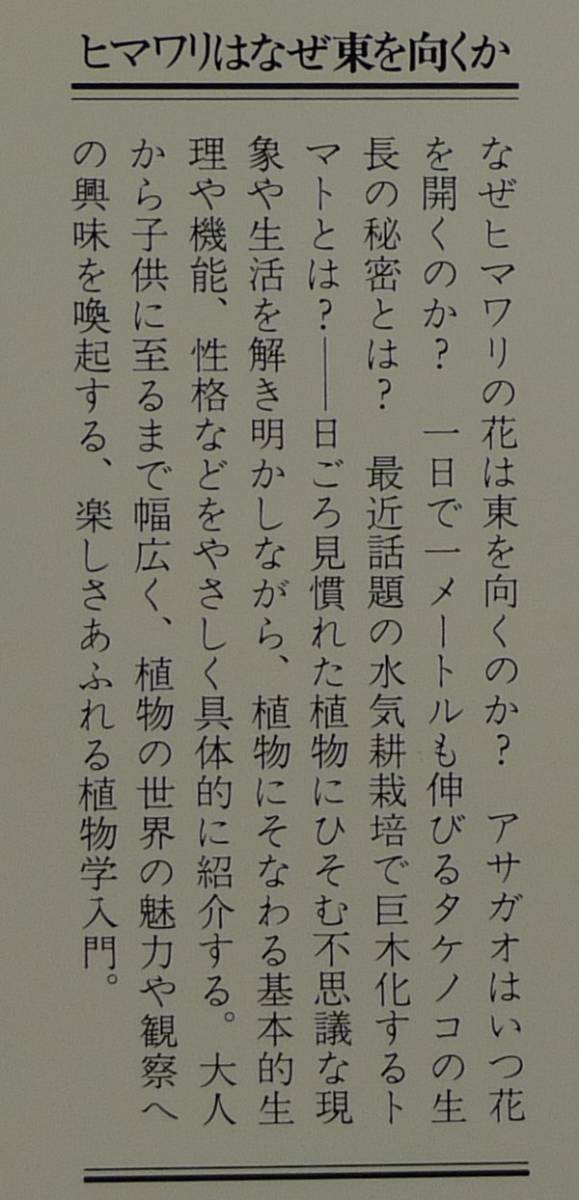 ヒマワリはなぜ東を向くか
なぜヒマワリの花は東を向くのか？　アサガオはいつ花
を開くのか？　一日で一メートルも伸びるタケノコの生
長の秘密とは？　最近話題の水気耕栽培で巨木化するト
マトとは？――日ごろ見慣れた植物にひそむ不思議な現
象や生活を解き明かしながら、植物にそなわる基本的生
理や機能、性格などをやさしく具体的に紹介する。大人
から子供に至るまで幅広く、植物の世界の魅力や観察へ
の興味を喚起する、楽しさあふれる植物学入門。